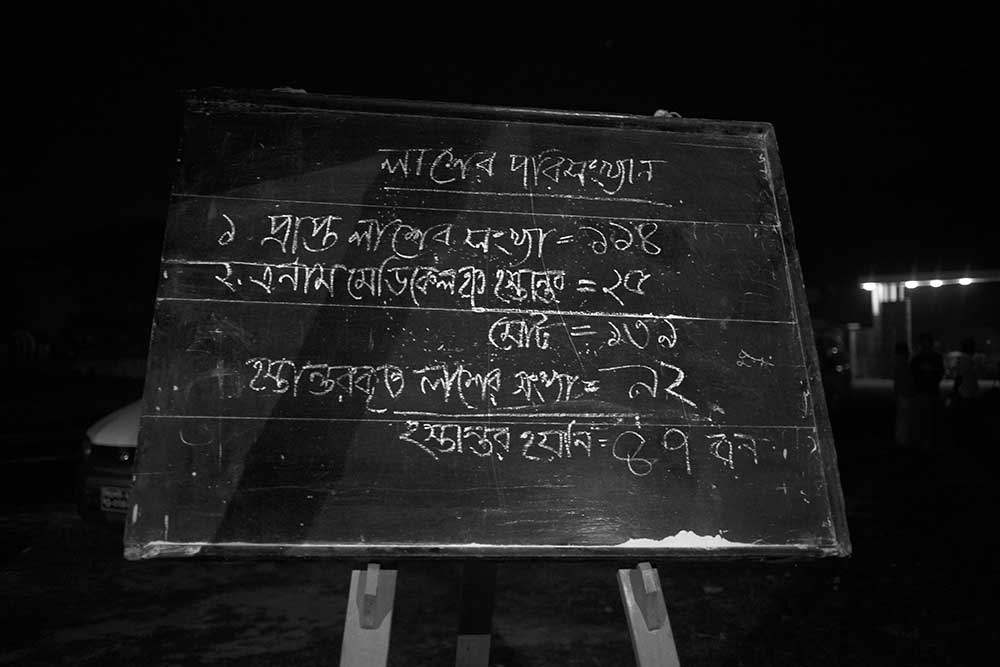 লাশের পরিসংখ্যান
১ প্রাপ্ত লাশের সংখ্যা = ১১৪
২. এনাম মেডিকেল হস্তান্তর = ২৫
মোট = ১৩৯
হস্তান্তরকৃত লাশের সংখ্যা = ৯২
হস্তান্তর হয়নি - ৪৭ জন